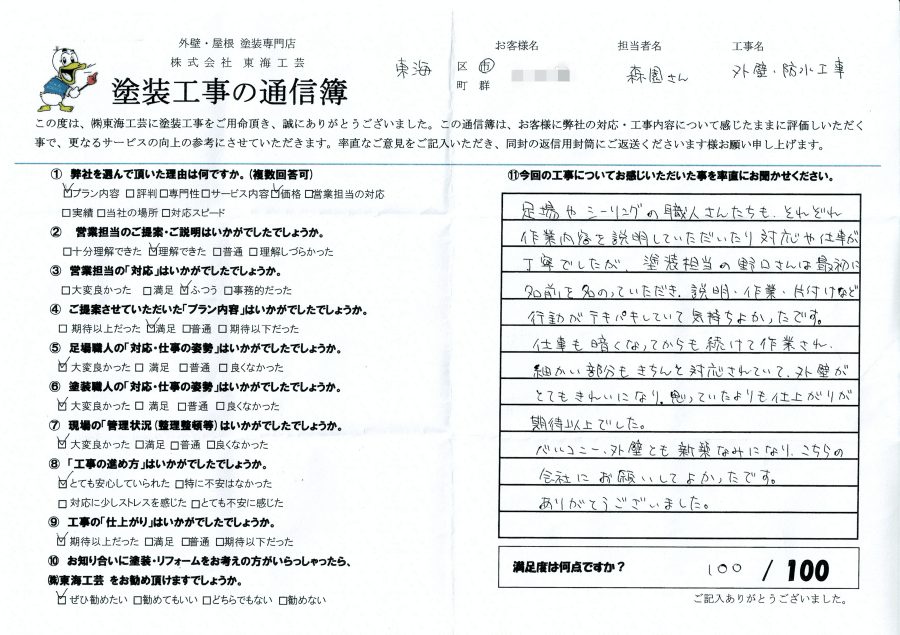 外壁・屋根 塗装専門店
株式会社 東海工芸
塗装工事の通信簿
東海 区 市 町 群
お客様名
担当者名
森園さん
工事名
外壁・防水工事
この度は、㈱東海工芸に塗装工事をご用命頂き、誠にありがとうございました。この通信簿は、お客様に弊社の対応・工事内容について感じたままに評価しいただく
事で、更なるサービスの向上の参考にさせていただきます。率直なご意見をご記入いただき、同封の返信用封筒にご返送くださいます様お願い申し上げます。
① 弊社を選んで頂いた理由は何ですか。(複数回答可)
☑プラン内容 □評判 □専門性 □サービス内容 ☑価格 □営業担当の対応
□実績 □当社の場所 □対応スピード
② 営業担当のご提案・ご説明はいかがでしたでしょうか。
□十分理解できた ☑理解できた □普通 □理解しづらかった
③ 営業担当の「対応」はいかがでしたでしょうか。
□大変良かった □満足 ☑ふつう □事務的だった
④ ご提案させていただいた「プラン内容」はいかがでしたでしょうか。
□ 期待以上だった ☑満足 □普通 □期待以下だった
⑤ 足場職人の「対応・仕事の姿勢」はいかがでしたでしょうか。
☑大変良かった □ 満足 □普通 □良くなかった
⑥ 塗装職人の「対応・仕事の姿勢」はいかがでしたでしょうか。
☑ 大変良かった □ 満足 □普通 □良くなかった
⑦ 現場の「管理状況(整理整頓等)はいかがでしたでしょうか。
☑大変良かった □満足 □普通 □良くなかった
⑧ 「工事の進め方」はいかがでしたでしょうか。
☑とても安心していられた □特に不安はなかった
□ 対応に少しストレスを感じた □とても不安に感じた
⑨ 工事の「仕上がり」はいかがでしたでしょうか。
☑ 期待以上だった □満足 □普通 □期待以下だった
⑩ お知り合いに塗装・リフォームをお考えの方がいらっしゃったら、
㈱東海工芸 をお勧め頂けますでしょうか。
☑ぜひ勧めたい □勧めてもいい □どちらでもない □勧めない
⑪今回の工事についてお感じいただいた事を率直にお聞かせください。
足場やシーリングの職人さんたちも、それぞれ
作業内容を説明していただいたり対応や仕事が
丁寧でしたが、塗装担当の野口さんは最初に
名前を名のっていただき、説明・作業・片付けなど
行動がテキパキしていて気持ちよかったです。
仕事も暗くなってからも続けて作業され、
細かい部分もきちんと対応されていて、外壁が
とてもきれいになり、思っていたよりも仕上がりが
期待以上でした。
バルコニー、外壁とも新築なみになり、こちらの
会社にお願いしてよかったです。
ありがとうございました。
満足度は何点ですか? 100 / 100
ご記入ありがとうございました。